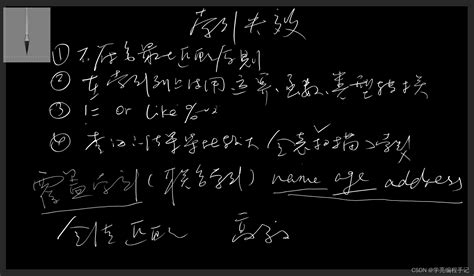 索引失效
① 不符合最左匹配原则
② 在索引列上使用运算、函数、类型转换
③ != or like %
④ 查询结果占比较大 全表扫描 索引
覆盖索引(联合索引) name age address
全值匹配 高效
CSDN @学亮编程手记